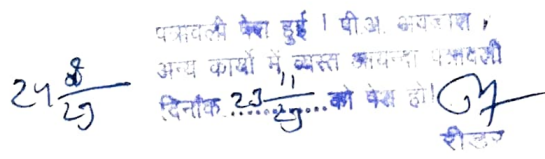 पत्रावली पेश हुई । पी.अ. अवकाश,
अन्य कार्यो में व्यस्त आयन्दा पत्रावली
दिनांक 23/11/29 को पेश हो।
रीडर